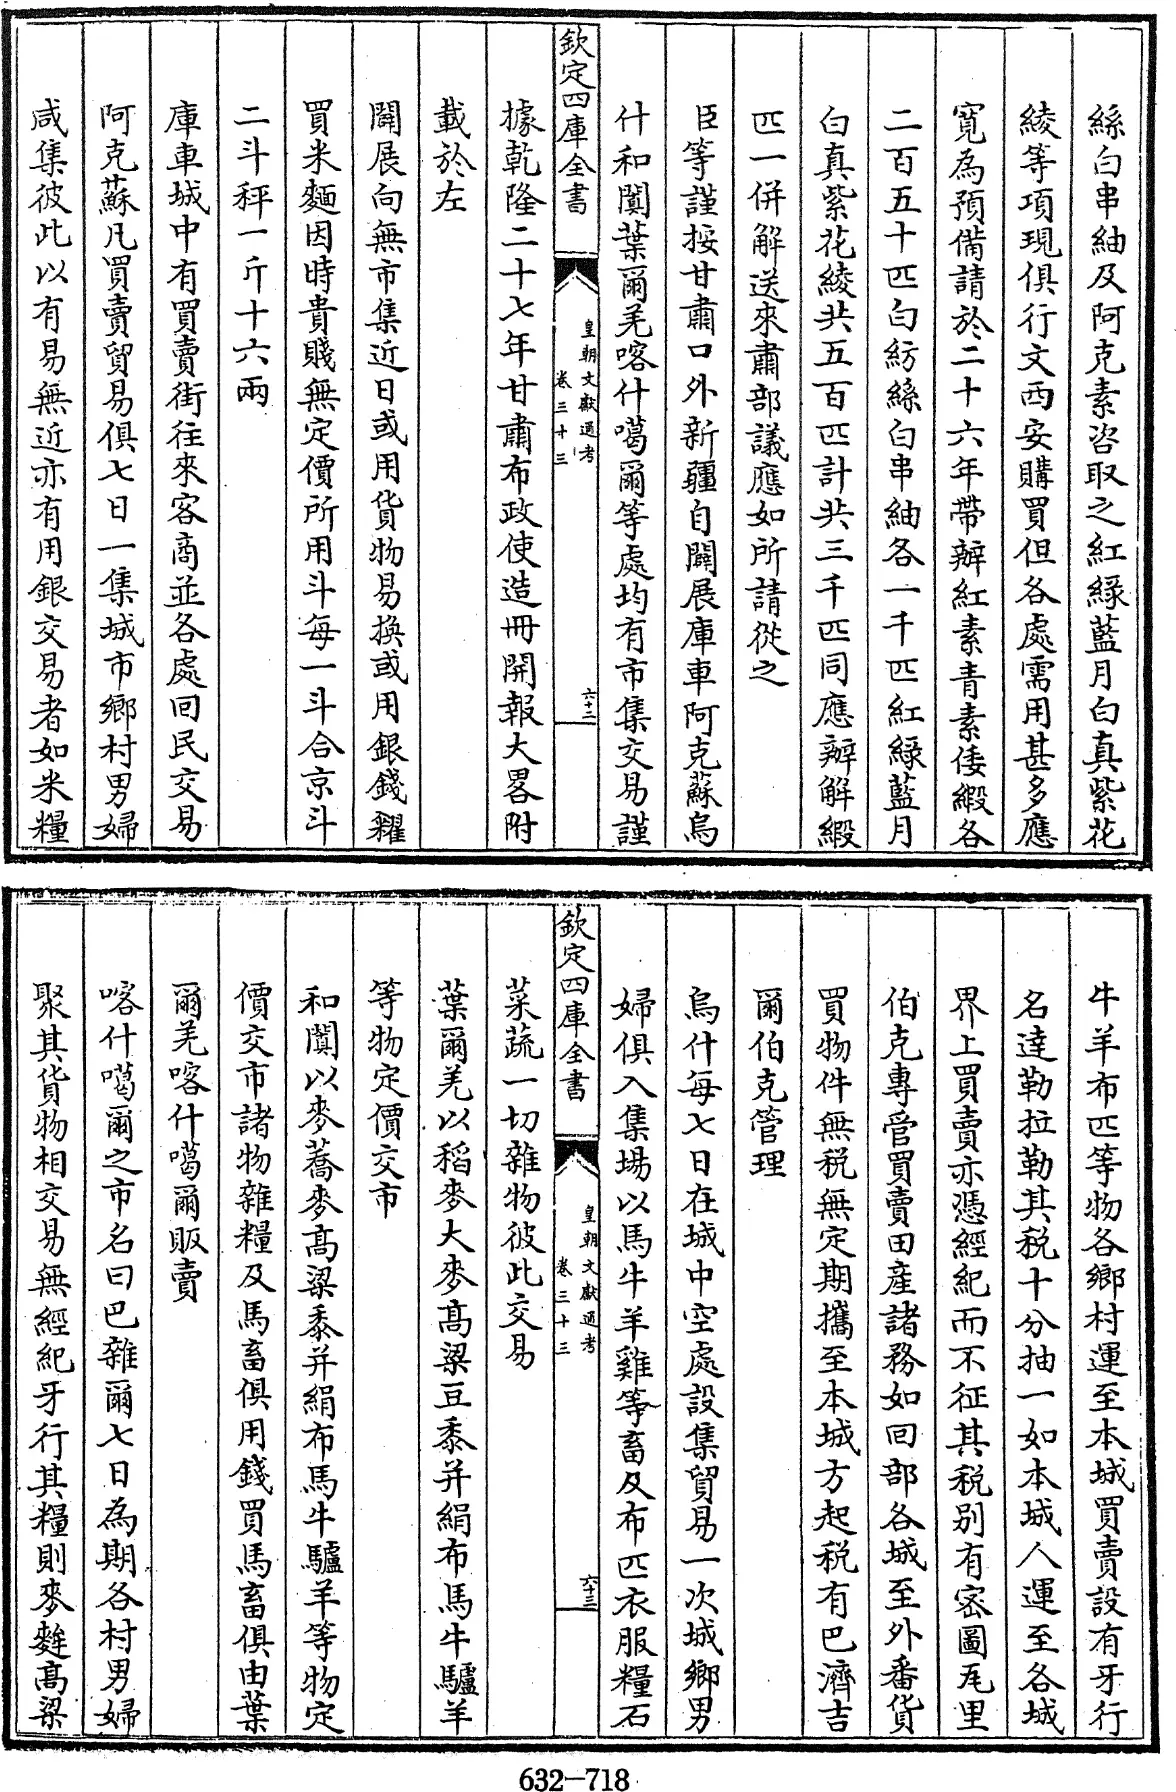 絲白串紬及阿克素咨取之紅緑藍月白真紫花
綾等項現俱行文西安購買但各處需用甚多應
寛為預備請於二十六年帶辦紅素青素倭緞各
二百五十匹白紡絲白串紬各一千匹紅緑藍月
白真紫花綾共五百匹計共三千匹同應辦解緞
匹一併解送來肅部議應如所請從之
臣等謹按甘肅口外新疆自闢展庫車阿克蘇烏
什和闐葉爾羌喀什噶爾等處均有市集交易謹
欽定四庫全書
皇朝文獻通考
卷三十三
六十二
據乾隆二十七年甘肅布政使造冊開報大畧附
載於左
闢展向無市集近日或用貨物易換或用銀錢糴
買米麵因時貴賤無定價所用斗每一斗合京斗
二斗秤一斤十六兩
庫車城中有買賣街往來客商並各處回民交易
阿克蘇凡買賣貿易俱七日一集城市鄉村男婦
咸集彼此以有易無近亦有用銀交易者如米糧
牛羊布匹等物各鄉村運至本城買賣設有牙行
名達勒拉勒其税十分抽一如本城人運至各城
界上買賣亦憑經紀而不征其税别有密圖瓦里
伯克專管買賣田産諸務如回部各城至外番貨
買物件無税無定期攜至本城方起税有巴濟吉
爾伯克管理
烏什每七日在城中空處設集貿易一次城鄉男
婦俱入集場以馬牛羊雞等畜及布匹衣服糧石
欽定四庫全書
皇朝文獻通考
卷三十三
六十三
菜蔬一切雜物彼此交易
葉爾羌以稻麥大麥髙粱豆黍并絹布馬牛驢羊
等物定價交市
和闐以麥蕎麥髙粱黍并絹布馬牛驢羊等物定
價交市諸物雜糧及馬畜俱用錢買馬畜俱由葉
爾羌喀什噶爾販賣
喀什噶爾之市名曰巴雜爾七日為期各村男婦
聚其貨物相交易無經紀牙行其糧則麥麰髙粱
632-718